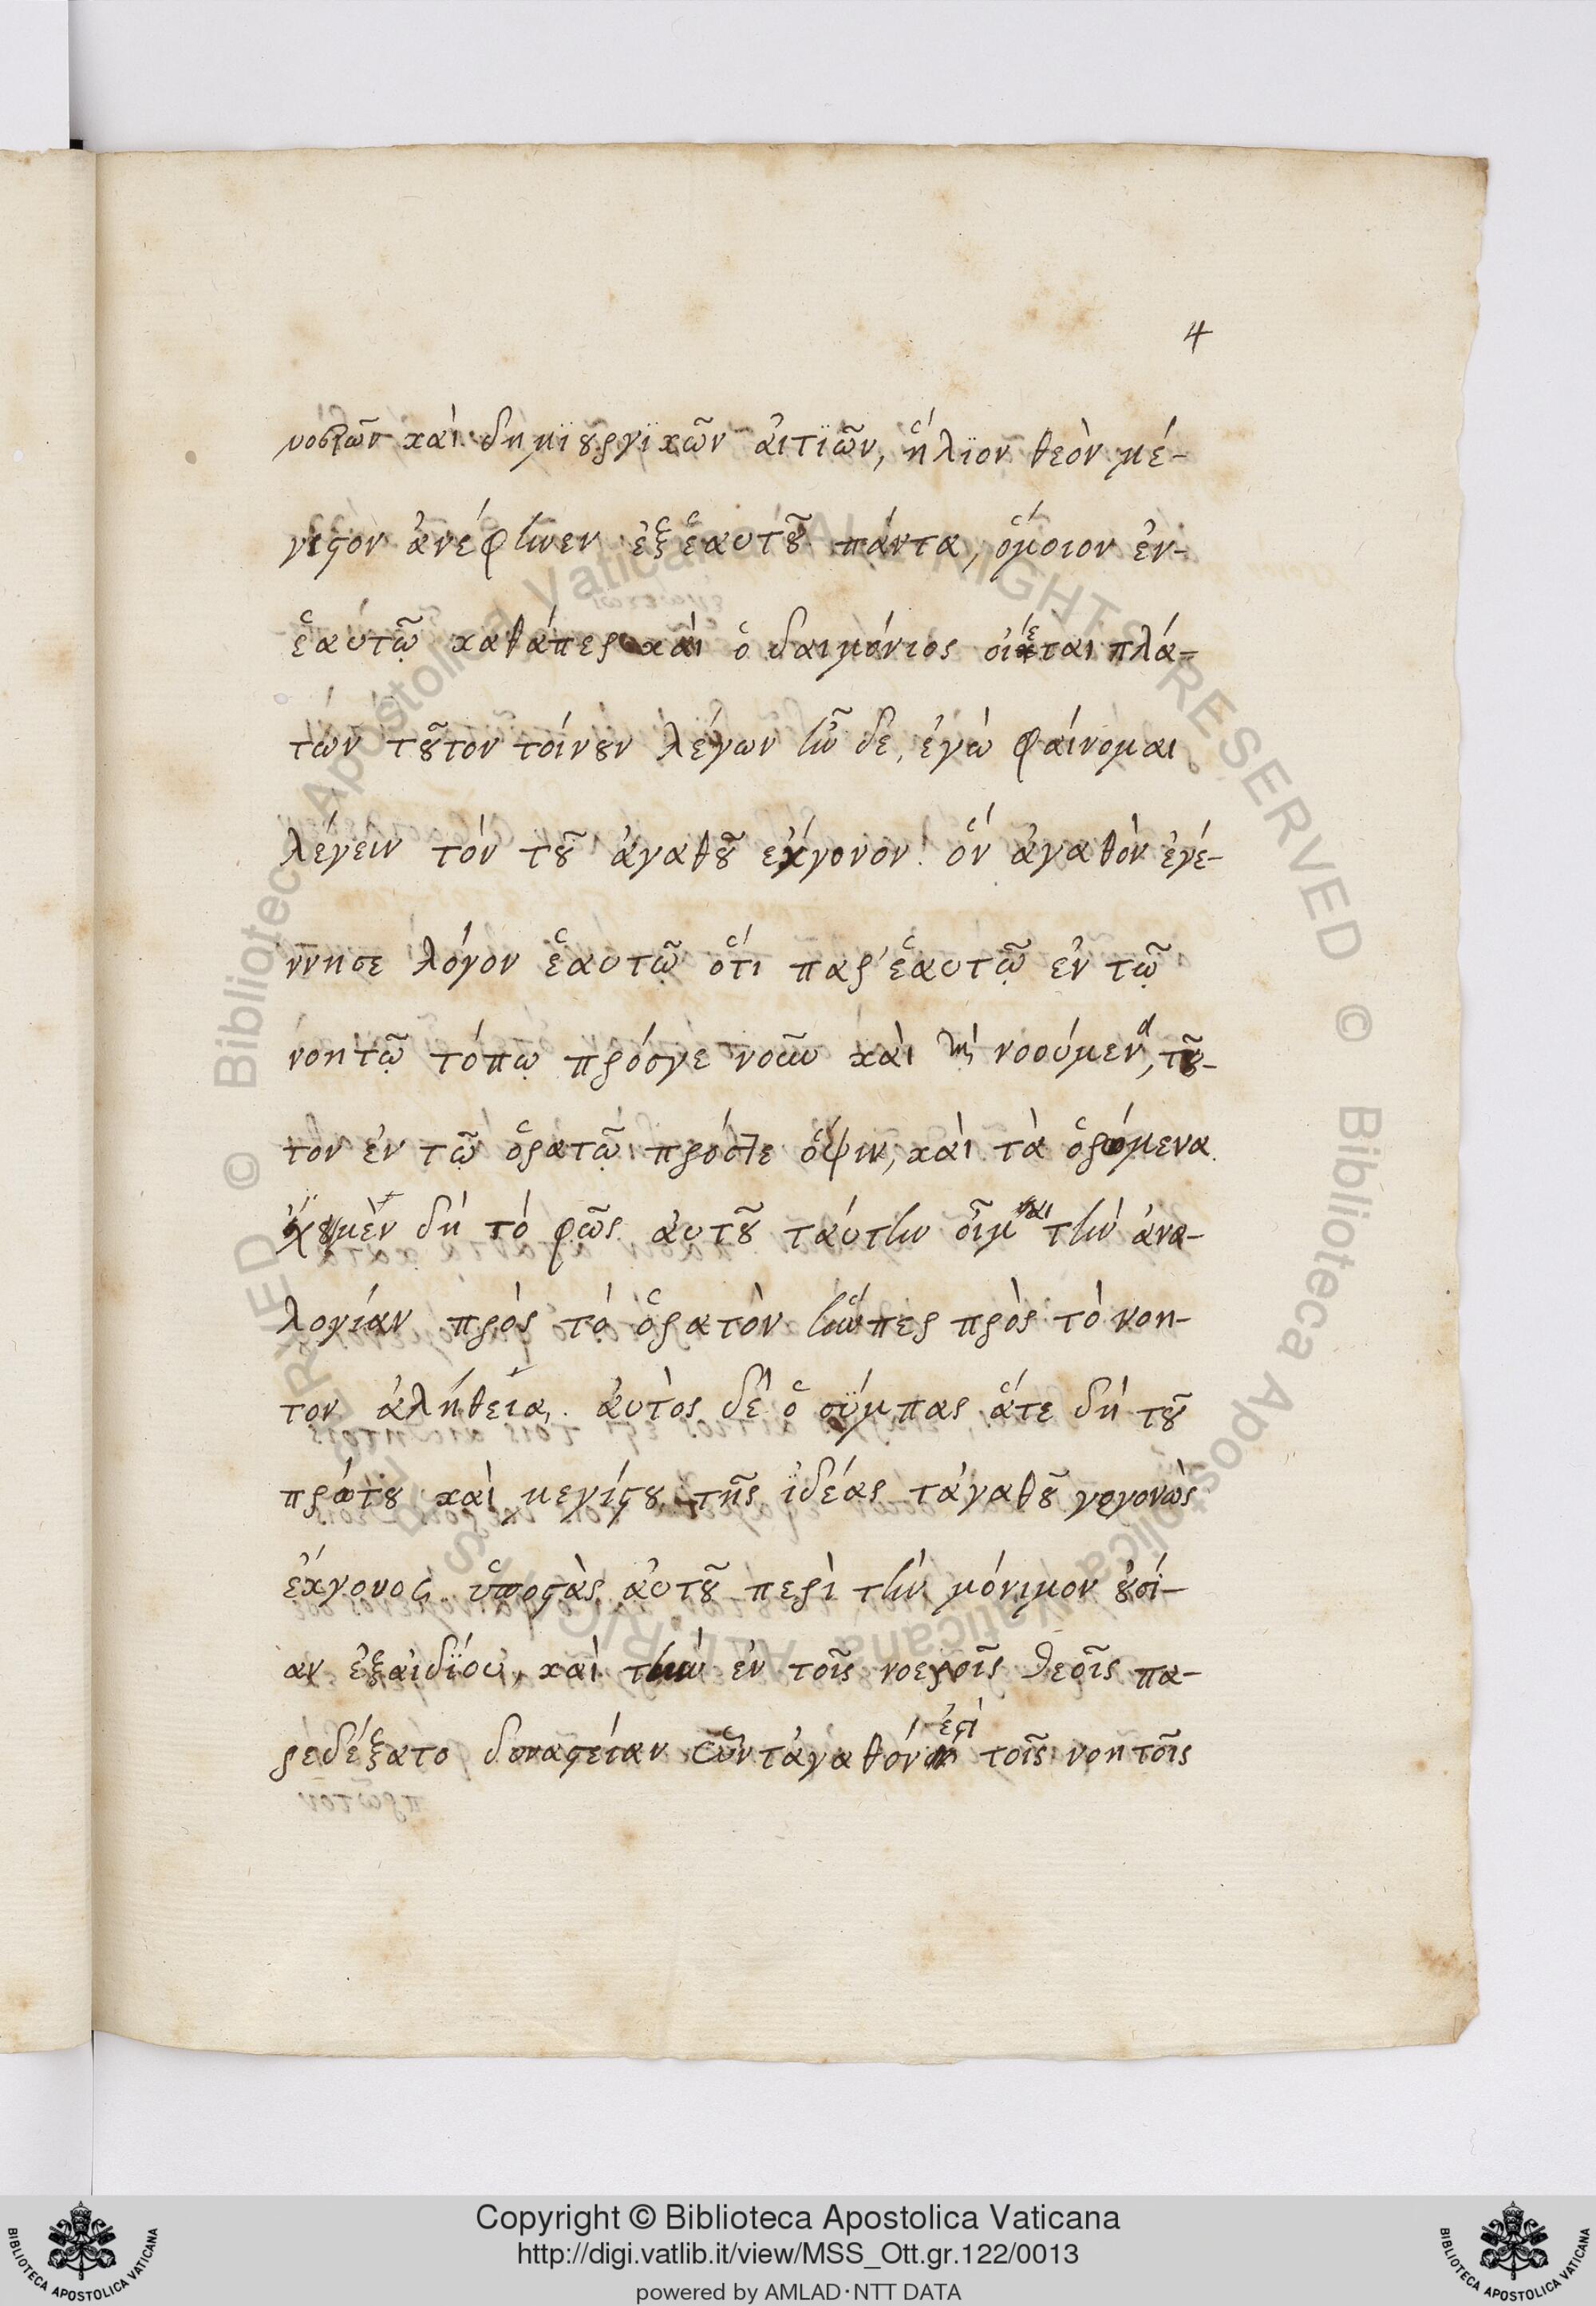 4
νοσιῶν καὶ δημϊουργϊκῶν ἀιτϊῶν, ἥλϊον θεὸν μέ-
γιστον ἀνέφηνεν ἐξ ἑαυτοῦ πάντα, ὅμοιον ἐν-
ἑαυτῷ καθάπερ καὶ ὁ δαιμόνιος οἴεται πλά-
των τοῦτον τοίνυν λέγων ἦν δε, ἐγὼ φαίνομαι
λέγειν τὸν τοῦ ἀγαθοῦ ἔκγονον! ὅν ἀγαθὸν ἐγέ-
ννησε λόγον ἑαυτῷ ὅτι παρ' ἑαυτῷ ἐν τῷ
νοητῷ τόπῳ πρόσγε νοῦν καὶ νοούμενα, τοῦ-
τον ἐν τῷ ὁρατῷ πρόστε ὄψιν, καὶ τὰ ὁρώμενα.
ἔχει μὲν δή τό φῶς αὐτοῦ ταύτην οἶμαι τὴν ἀνα-
λογίαν πρὸς τὸ ὁρατὸν ἥνπερ πρὸς τὸ νοη-
τον ἀλήθεια, αὐτὸς δέ ὁ σύμπας ἅτε δή τοῦ
πρώτου καὶ μεγίστου τῆς ἰδέας τἀγαθοῦ γεγονὼς
ἔκγονος ὑποστὰς αὐτοῦ περὶ τὴν μόνιμον οὐσί-
αν ἐξαιδϊου, καὶ τὴν ἐν τοῖς νοεροῖς θεοῖς πα-
ρεδέξατο δυναστείαν ὧν τἀγαθόν ἐστὶ τοῖς νοητοῖς
Copyright © Biblioteca Apostolica Vaticana
http://digi.vatlib.it/view/MSS_Ott.gr.122/0013
powered by AMLAD·NTT DATA